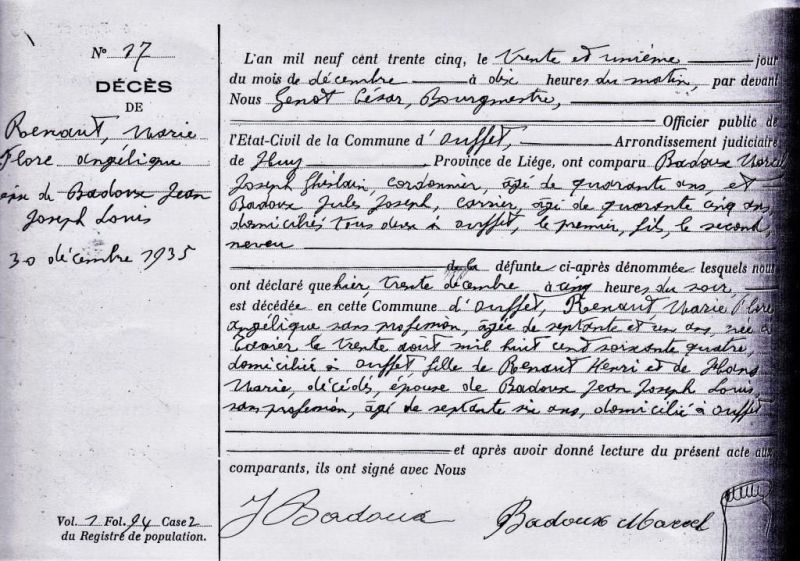 N° 17
DÉCÈS
DE
Renaut, Marie
Flore angélique
épse de Badoux Jean
Joseph Louis
30 décembre 1935
Vol. 1 Fol. 94 Case 2
du Registré de population.
L'an mil neuf cent trente cinq, le trente et unième jour
du mois de décembre à dix heures du matin, par devant
Nous Genot César, Bourgmestre,
Officier public de
l'Etat-Civil de la Commune d'Ouffet, Arrondissement judiciaire
de Huy Province de Liége, ont comparu Badoux Marcel
Joseph Ghislain, cordonnier, âgé de quarante ans, et
Badoux Jules Joseph, carrier, âgé de quarante cinq ans,
domiciliés tous deux à Ouffet, le premier, fils, le second,
neveu
de la défunte ci-après dénommée lesquels nous
ont déclaré que hier, trente décembre à cinq heures du soir,
est décédée en cette Commune d'Ouffet, Renaut Marie Flore
angélique sans profession, âgée de septante et un ans, née à
Tavier le trente août mil huit cent soixante quatre,
domiciliée à Ouffet fille de Renaut Henri et de
Marie, décédés, épouse de Badoux Jean Joseph Louis,
sans profession, âgé de septante six ans, domicilié à Ouffet
et après avoir donné lecture du présent acte aux
comparants, ils ont signé avec Nous
J Badoux
Badoux Marcel